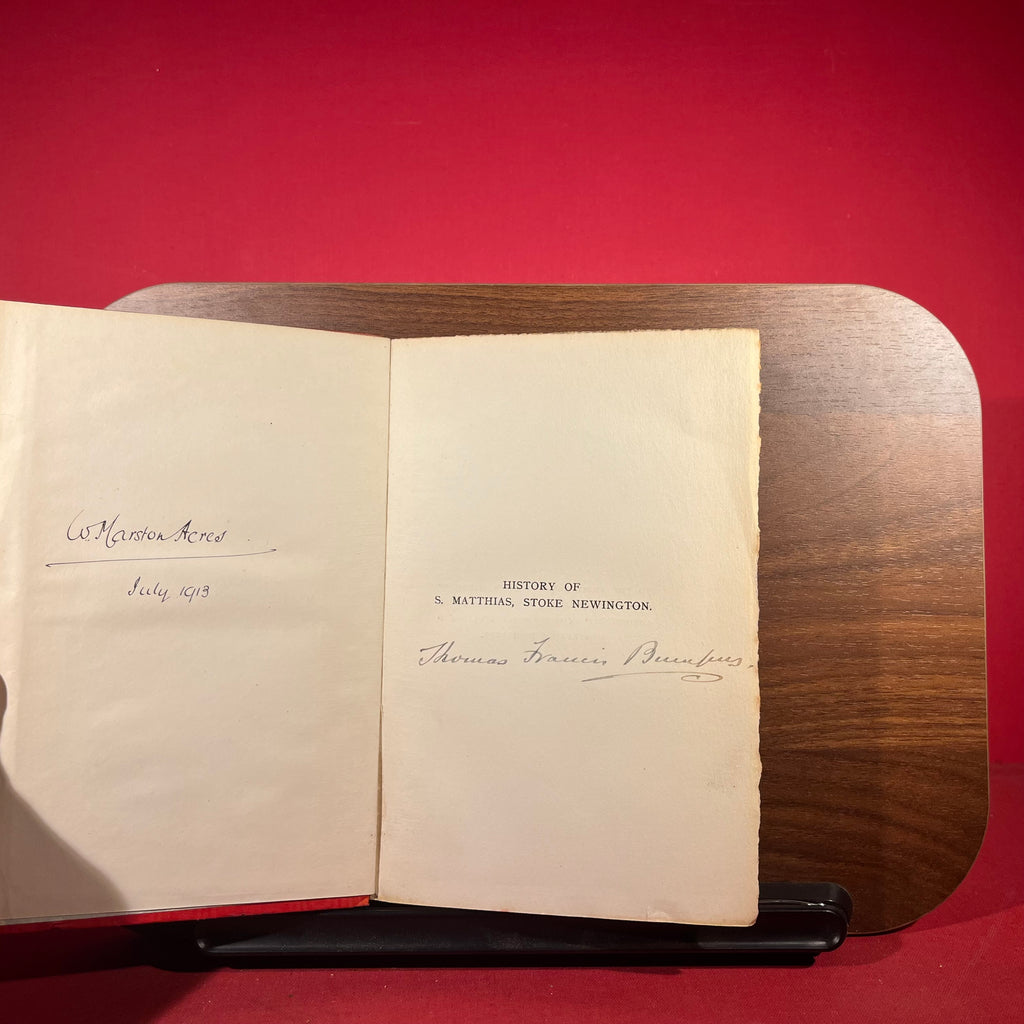 W. Marston Acres
July 1913
HISTORY OF
S. MATTHIAS, STOKE NEWINGTON.
Thomas Francis Bumpus.